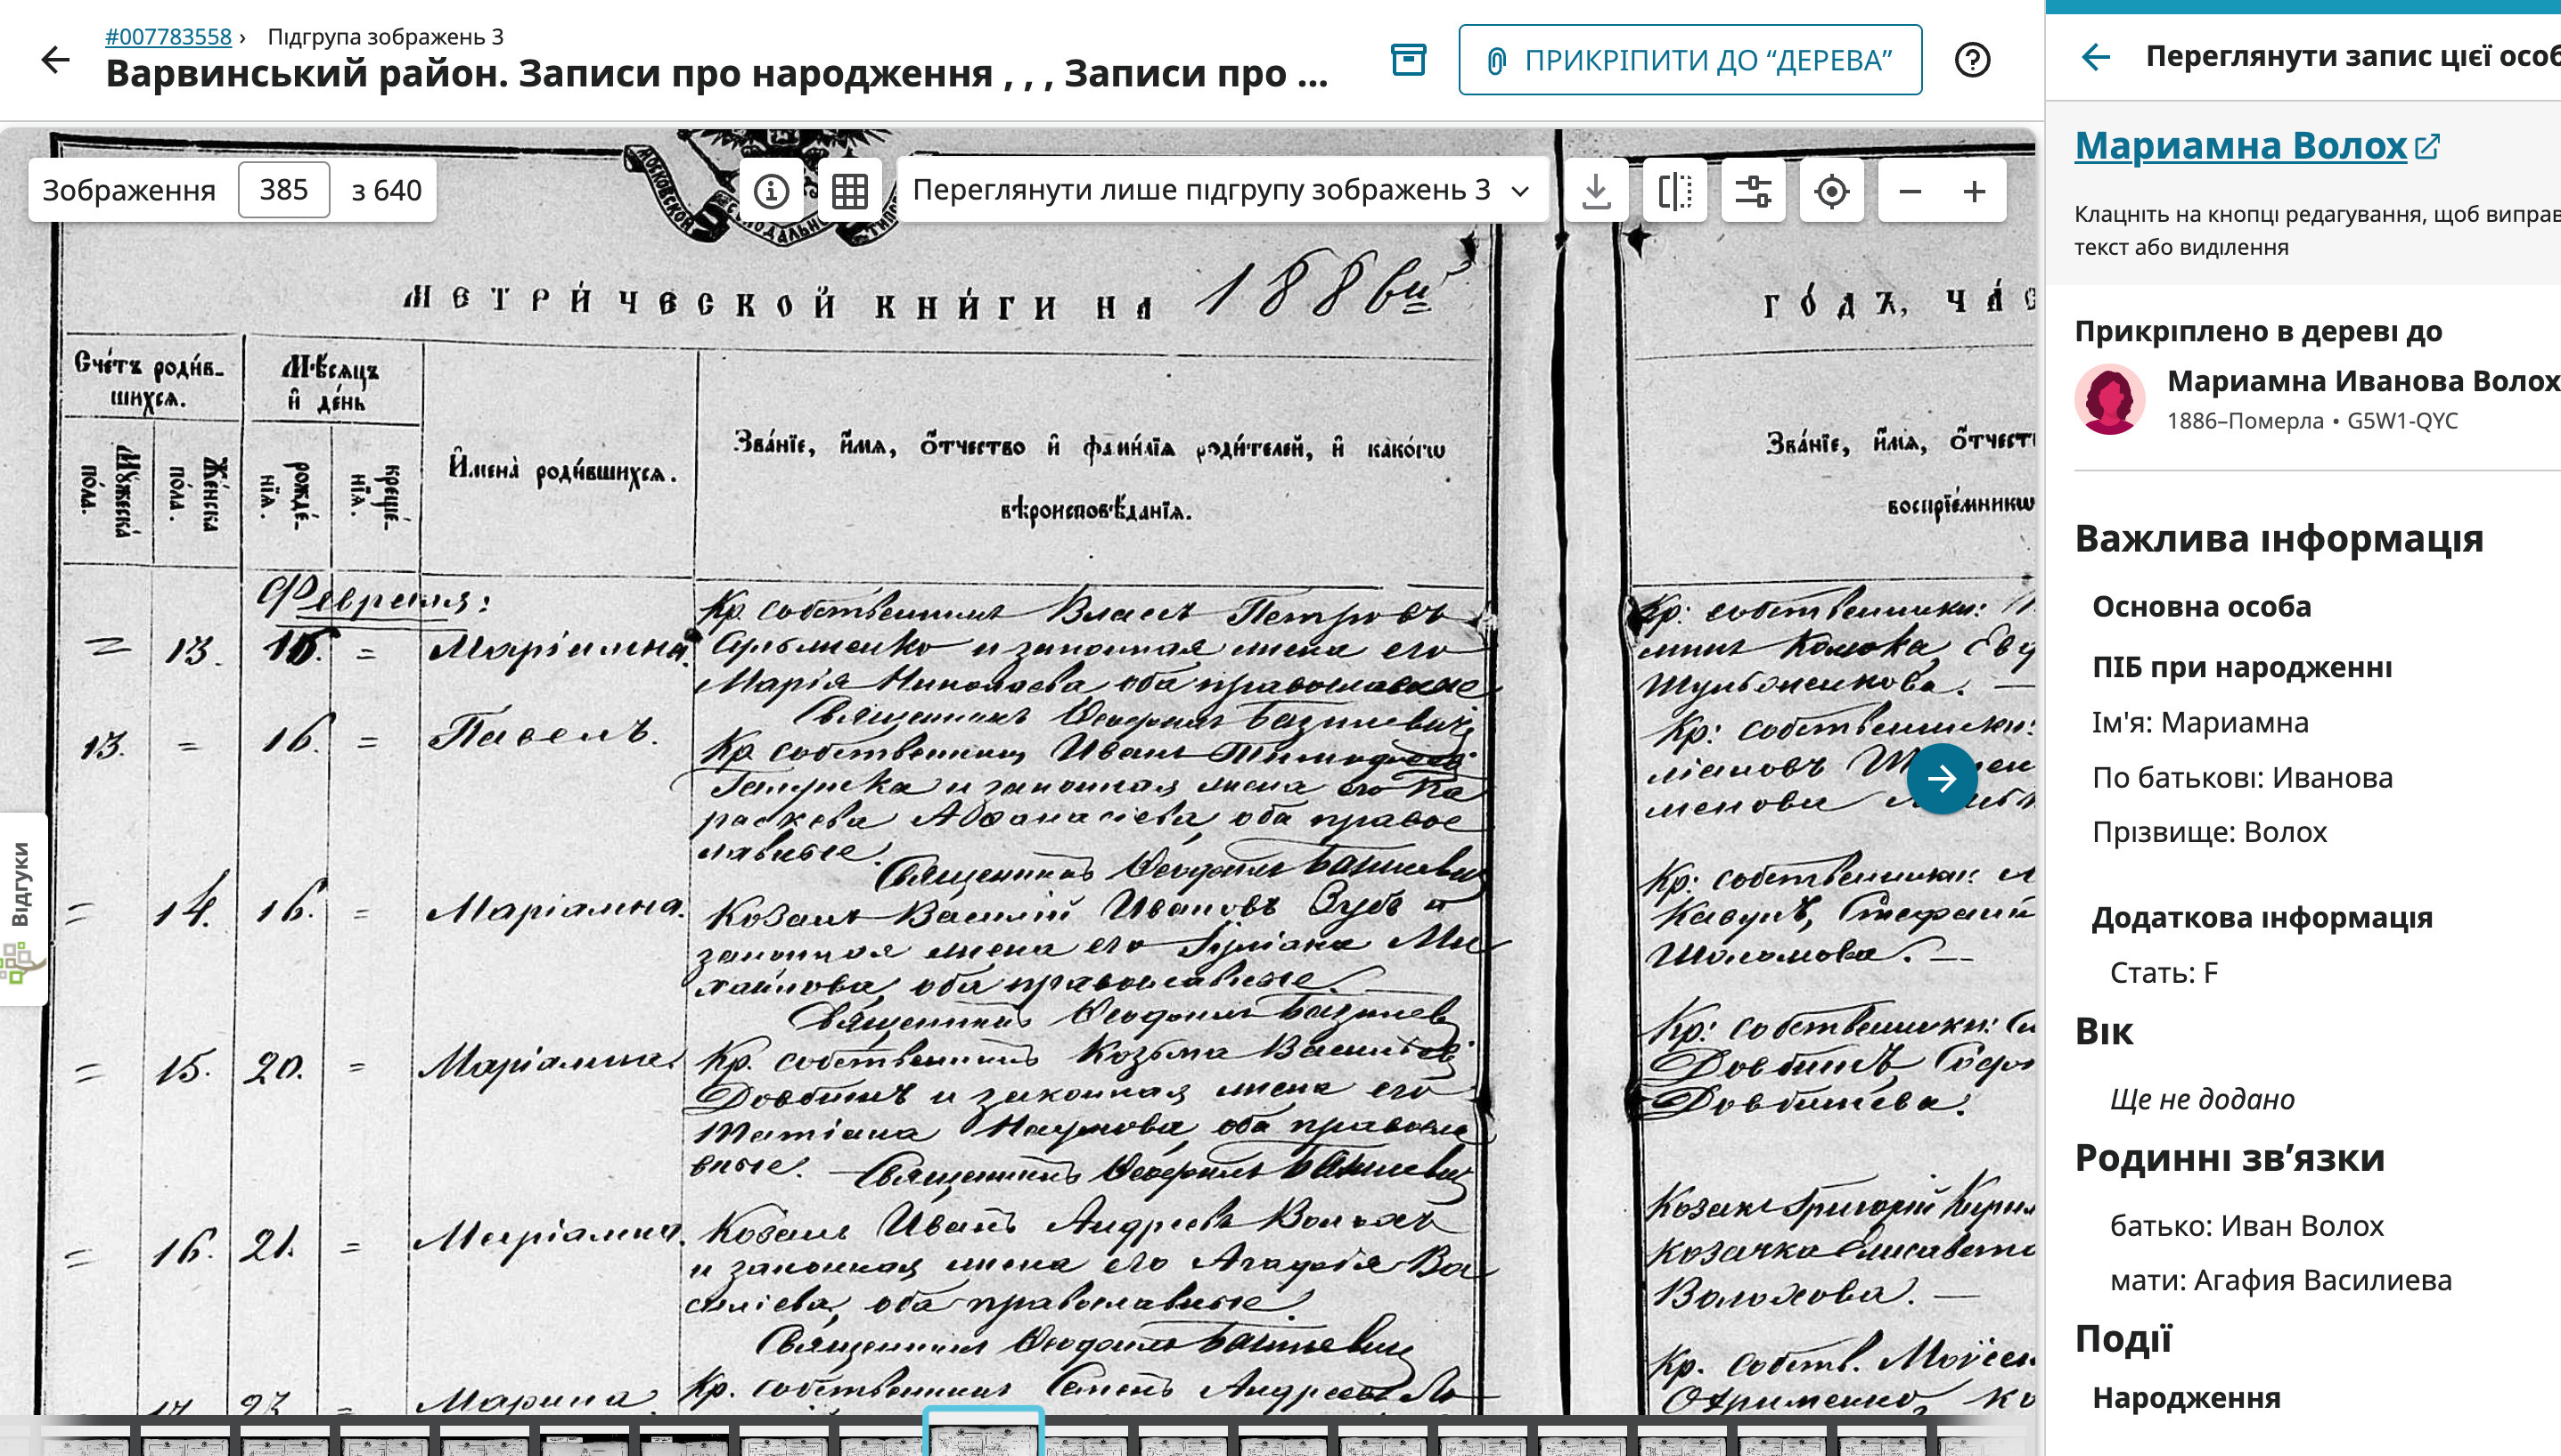 #007783558 › Підгрупа зображень 3
Варвинський район. Записи про народження , , , Записи про ...
ПРИКРІПИТИ ДО “ДЕРЕВА”
Зображення 385 з 640
Переглянути лише підгрупу зображень 3
Відгуки
МОСКОВСКОЙ
МЕТРИ́ЧЕСКОЙ КНИ́ГИ НА 1886й
ГО́ДЪ, ЧА́С
Сче́тъ роди́в-
шихсѧ.
Мѣ́сѧцъ
и҆ де́нь
Мꙋ́жеска по́ла.
Же́нска по́ла.
рожде́-нїѧ.
креще́-нїѧ.
И҆мена̀ роди́вшихсѧ.
Зва́нїе, и҆́мѧ, ѻ҆́тчество и҆ фами́лїѧ роди́телей, и҆ како́гѡ
вѣроисповѣ́данїѧ.
Зва́нїе, и҆́мѧ, ѻ҆́тчест
воспрїе́мникѡ
Февраля:
= 13. 15. = Маріамна.
Кр. собственникъ Власъ Петровъ
и законная жена его
Марія Николаева оба православные
Священникъ Базилевичъ
13. = 16. = Павелъ.
Кр собственникъ Иванъ
и законная жена его Па
раскева Афанасіева оба правос
лавные.
Священникъ Базилевич
= 14. 16. = Маріамна.
Козакъ Василій Ивановъ Зубъ и
законная жена его Іуліана Ми
хайлова, оба православные.
Священникъ Базилев
= 15. 20. = Маріамна.
Кр. собственникъ Козьма Василіев
Довбышъ и законная жена его
Татіана Наумова, оба правосла
вные. — Священникъ Базилевич
= 16. 21. = Маріамна.
Козакъ Иванъ Андреевъ Волохъ
и законная жена его Агафія Ва
силіева, оба православные.
Священникъ Базилевич
17. 23. = Марина
Кр. собственникъ Семенъ Андреевъ
Кр: собственники:
Кр: собственники:
Кр: собственники:
Кавунъ, Стефани
Шоломова. —
Кр: собственники:
Довбышъ,
Довбышева.
Козакъ Григорій Кирил
козачка Елисавета
Волохова. —
Кр. собств. Моѵсей
Охрименко, ко
Переглянути запис цієї особ
Мариамна Волох
Клацніть на кнопці редагування, щоб виправ
текст або виділення
Прикріплено в дереві до
Мариамна Иванова Волох
1886–Померла • G5W1-QYC
Важлива інформація
Основна особа
ПІБ при народженні
Ім'я: Мариамна
По батькові: Иванова
Прізвище: Волох
Додаткова інформація
Стать: F
Вік
Ще не додано
Родинні зв’язки
батько: Иван Волох
мати: Агафия Василиева
Події
Народження